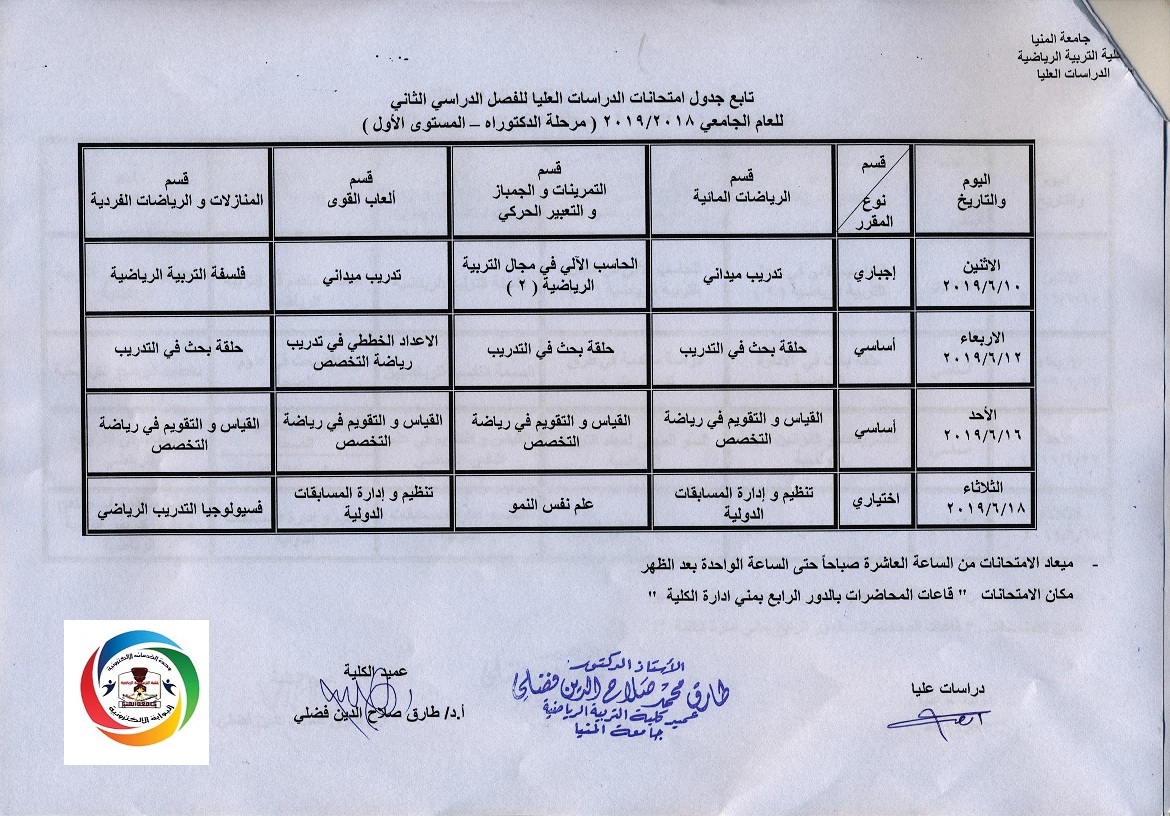 جامعة المنيا
كلية التربية الرياضية
الدراسات العليا
تابع جدول امتحانات الدراسات العليا للفصل الدراسي الثاني
للعام الجامعي ٢٠١٩/٢٠١٨ ( مرحلة الدكتوراه – المستوى الأول )
اليوم والتاريخ
قسم نوع المقرر
قسم الرياضات المائية
قسم التمرينات و الجمباز و التعبير الحركي
قسم ألعاب القوى
قسم المنازلات و الرياضات الفردية
الاثنين ٢٠١٩/٦/١٠
إجباري
تدريب ميداني
الحاسب الآلي في مجال التربية الرياضية ( ٢ )
تدريب ميداني
فلسفة التربية الرياضية
الاربعاء ٢٠١٩/٦/١٢
أساسي
حلقة بحث في التدريب
حلقة بحث في التدريب
الاعداد الخططي في تدريب رياضة التخصص
حلقة بحث في التدريب
الأحد ٢٠١٩/٦/١٦
أساسي
القياس و التقويم في رياضة التخصص
القياس و التقويم في رياضة التخصص
القياس و التقويم في رياضة التخصص
القياس و التقويم في رياضة التخصص
الثلاثاء ٢٠١٩/٦/١٨
اختياري
تنظيم و إدارة المسابقات الدولية
علم نفس النمو
تنظيم و إدارة المسابقات الدولية
فسيولوجيا التدريب الرياضي
- ميعاد الامتحانات من الساعة العاشرة صباحاً حتى الساعة الواحدة بعد الظهر
مكان الامتحانات " قاعات المحاضرات بالدور الرابع بمني ادارة الكلية "
دراسات عليا
الأستاذ الدكتور
طارق محمد صلاح الدين فضلي
عميد كلية التربية الرياضية
جامعة المنيا
عميد الكلية
أ.د/ طارق صلاح الدين فضلي
وحدة الخدمات الالكترونية
البوابة الالكترونية